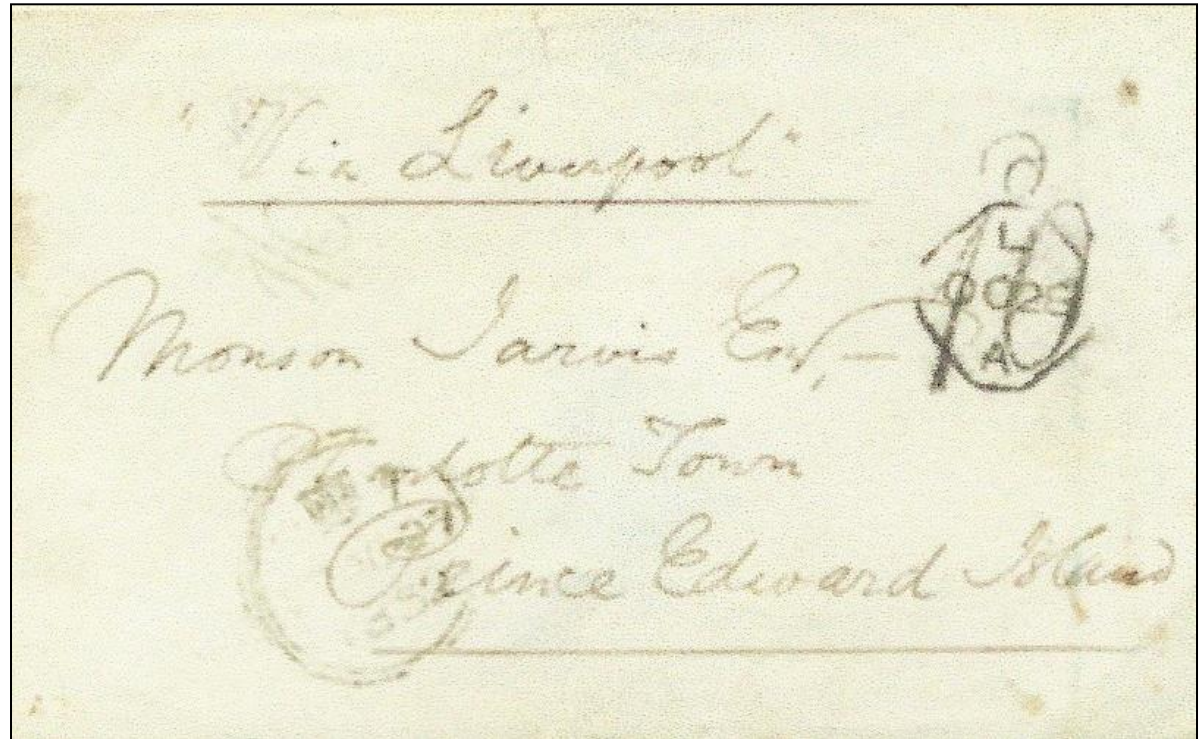 "Via Liverpool"
Monson Jarvis Esq,
Charlotte Town
Prince Edward Island
L
OC 28
A
27